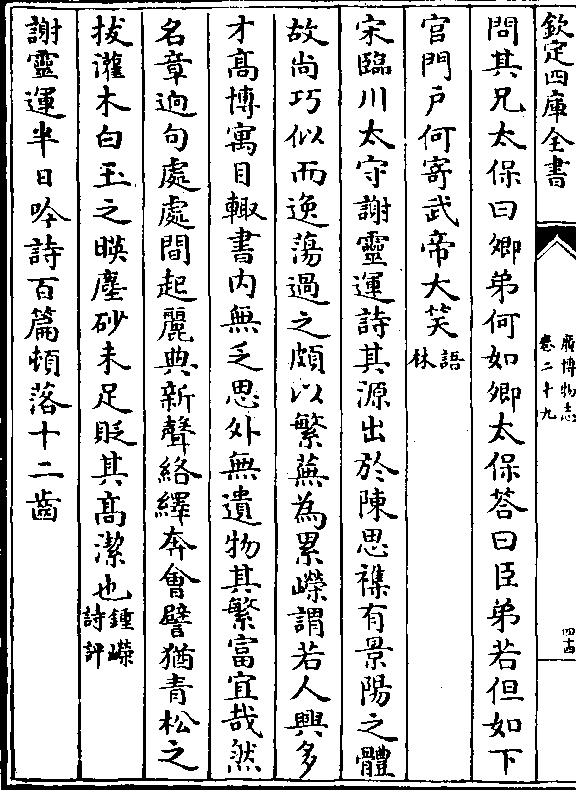 欽定四庫全書
廣博物志
卷二十九
四十四
問其兄太保曰卿弟何如卿太保答曰臣弟若但如下
官門戶何寄武帝大笑語林
宋臨川太守謝靈運詩其源出於陳思襍有景陽之體
故尚巧似而逸蕩過之頗以繁蕪為累嶸謂若人興多
才髙博寓目輙書内無乏思外無遺物其繁富宜哉然
名章逈句處處間起麗典新聲絡繹奔會譬猶青松之
拔灌木白玉之暎塵砂未足貶其髙潔也鍾嶸詩評
謝靈運半日吟詩百篇頓落十二齒